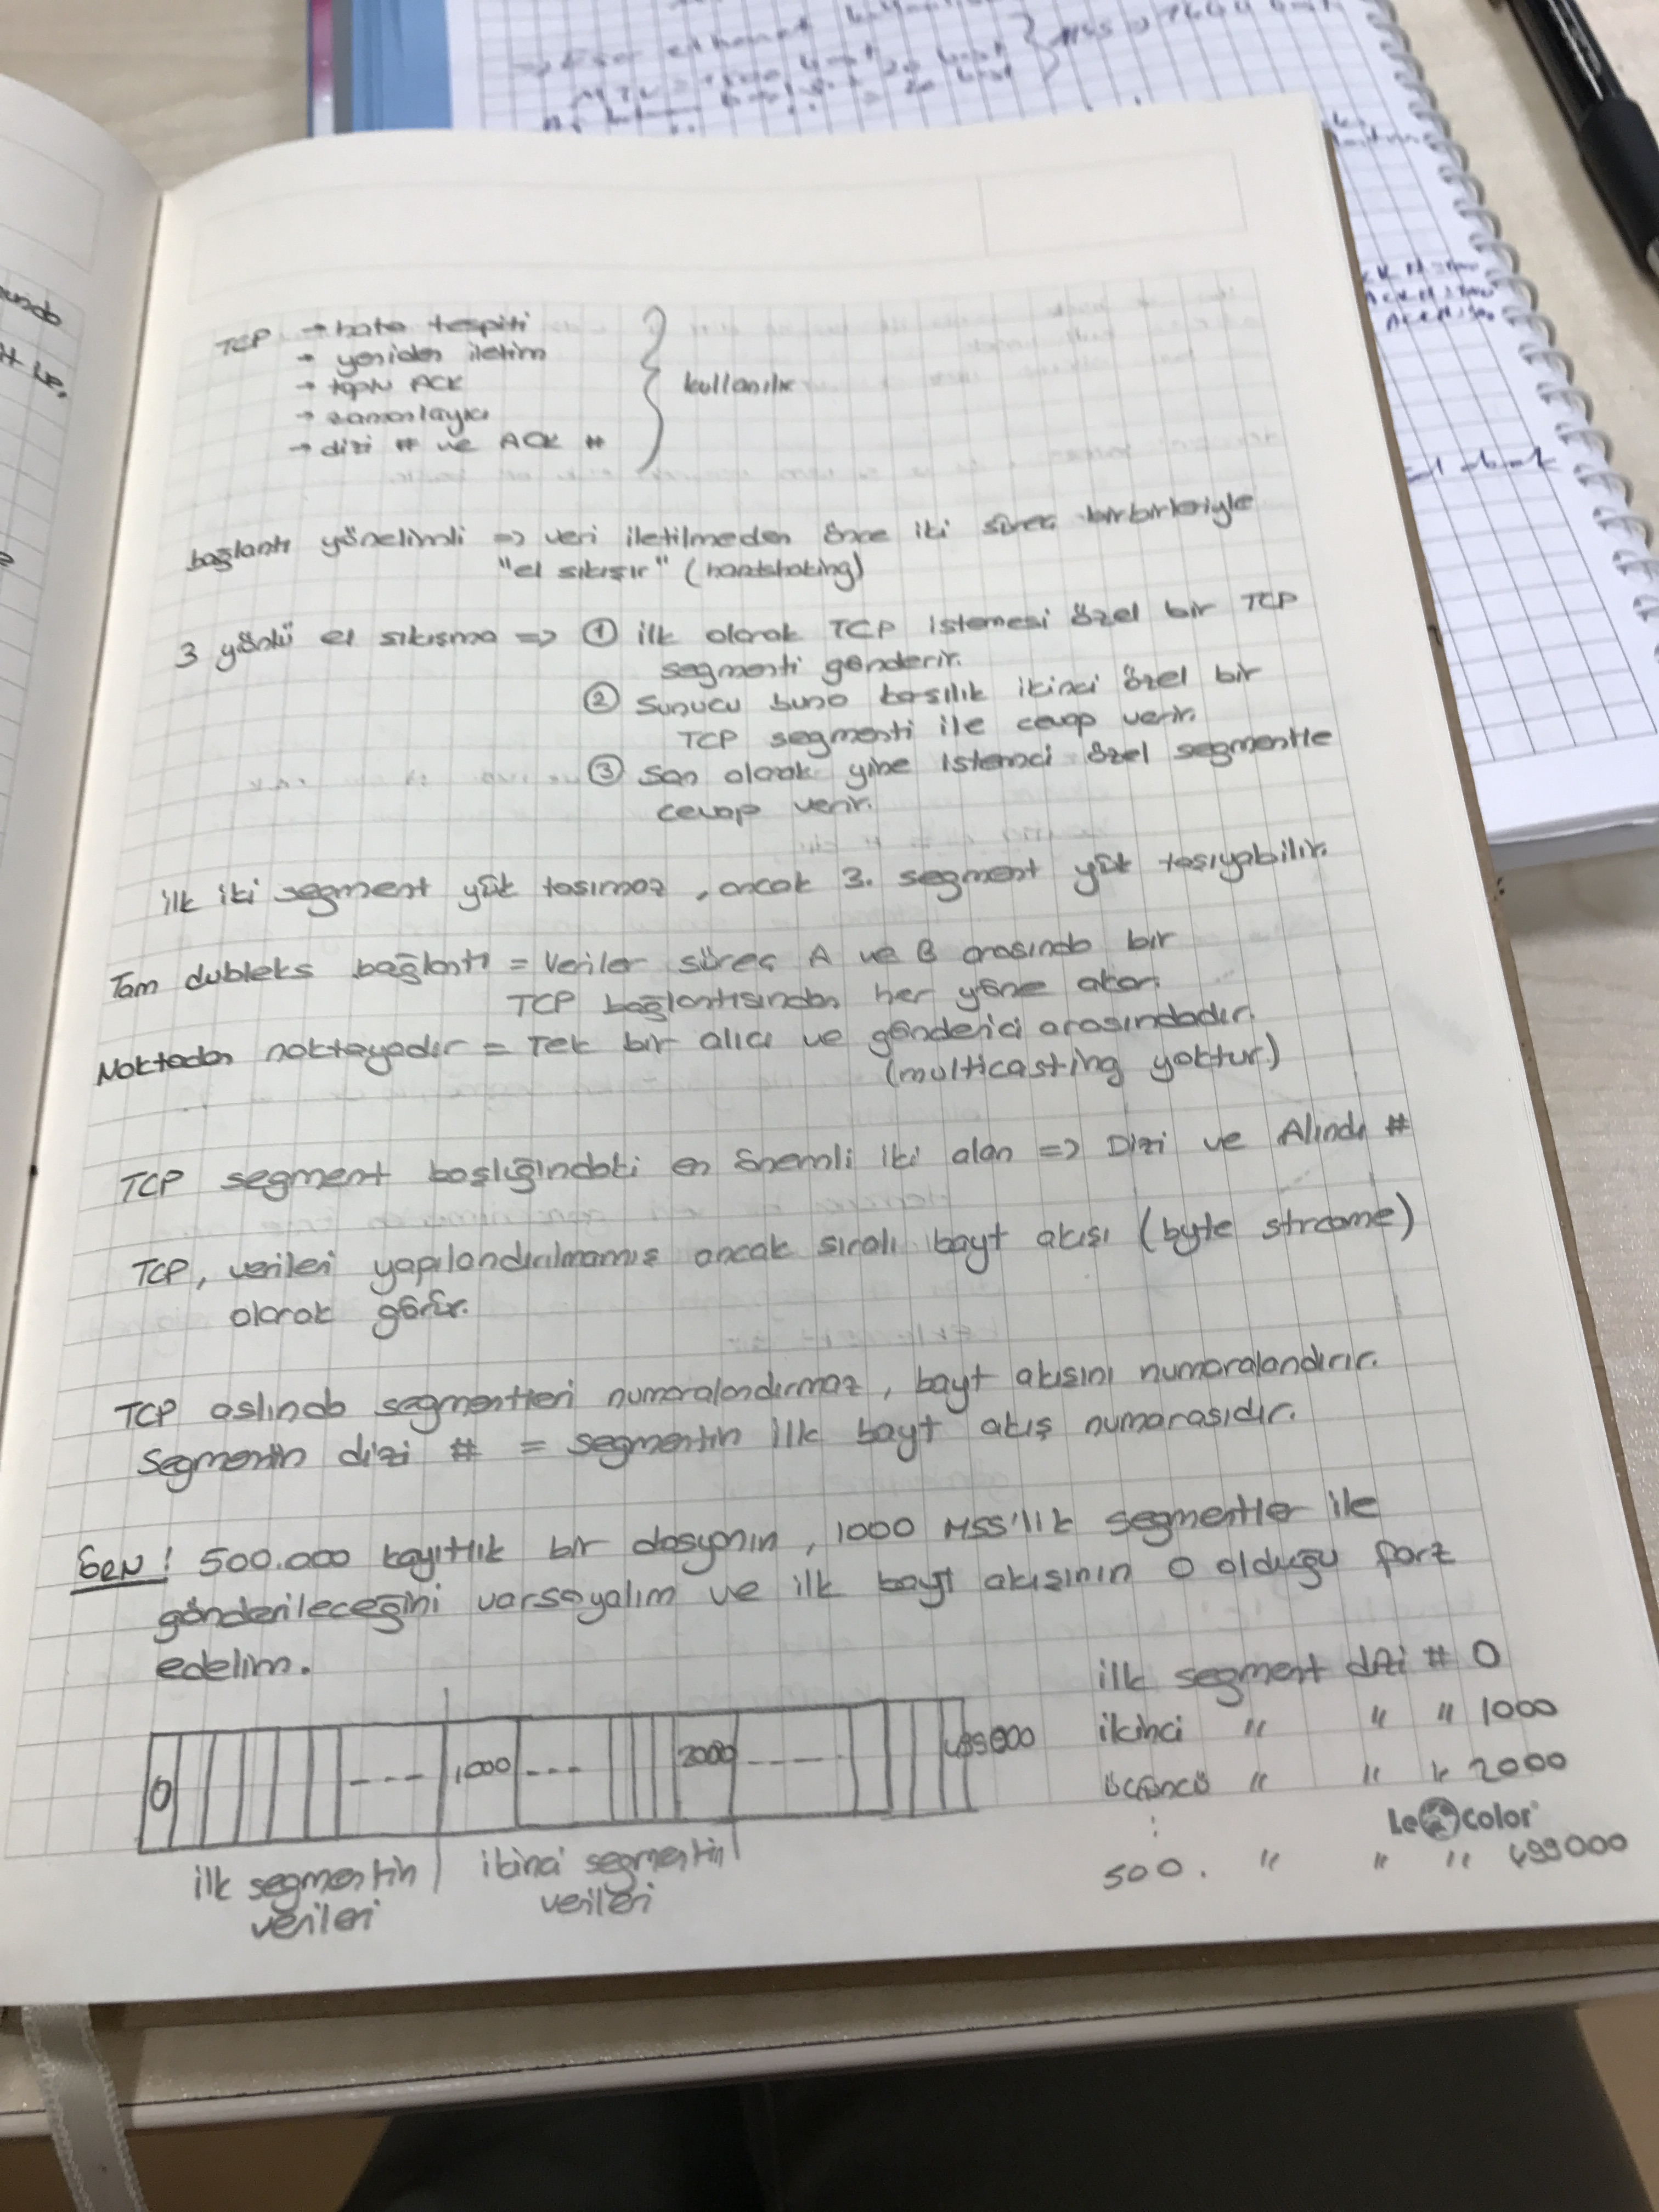 TCP → hata tespiti
→ yeniden iletim
→ toplu ACK
→ zamanlayıcı
→ dizi # ve ACK #
kullanılır
bağlantı yönelimli => veri iletilmeden önce iki süreç birbirleriyle
"el sıkışır" (handshaking)
3 yönlü el sıkışma => ① ilk olarak TCP istemcisi özel bir TCP
segmenti gönderir.
② Sunucu buna karşılık ikinci özel bir
TCP segmenti ile cevap verir.
③ Son olarak yine istemci özel segmentle
cevap verir.
ilk iki segment yük taşımaz, ancak 3. segment yük taşıyabilir.
Tam dubleks bağlantı = Veriler süreç A ve B arasında bir
TCP bağlantısından her yöne akar.
Noktadan noktayadır = Tek bir alıcı ve gönderici arasındadır.
(multicasting yoktur.)
TCP segment başlığındaki en önemli iki alan => Dizi ve Alındı #
TCP, verileri yapılandırılmamış ancak sıralı bayt akışı (byte streame)
olarak görür.
TCP aslında segmentleri numaralandırmaz, bayt akışını numaralandırır.
Segmentin dizi # = segmentin ilk bayt akış numarasıdır.
500.000 kayıtlık bir dosyanın, 1000 MSS'lik segmentler ile
gönderileceğini varsayalım ve ilk bayt akışının 0 olduğu farz
edelim.
0 --- 1000 --- 2000 ---- 499000
ilk segmentin
verileri
ikinci segmentin
verileri
ilk segment dizi # 0
ikinci " " " 1000
üçüncü " " " 2000
:
500. " " " 499000
LeColor